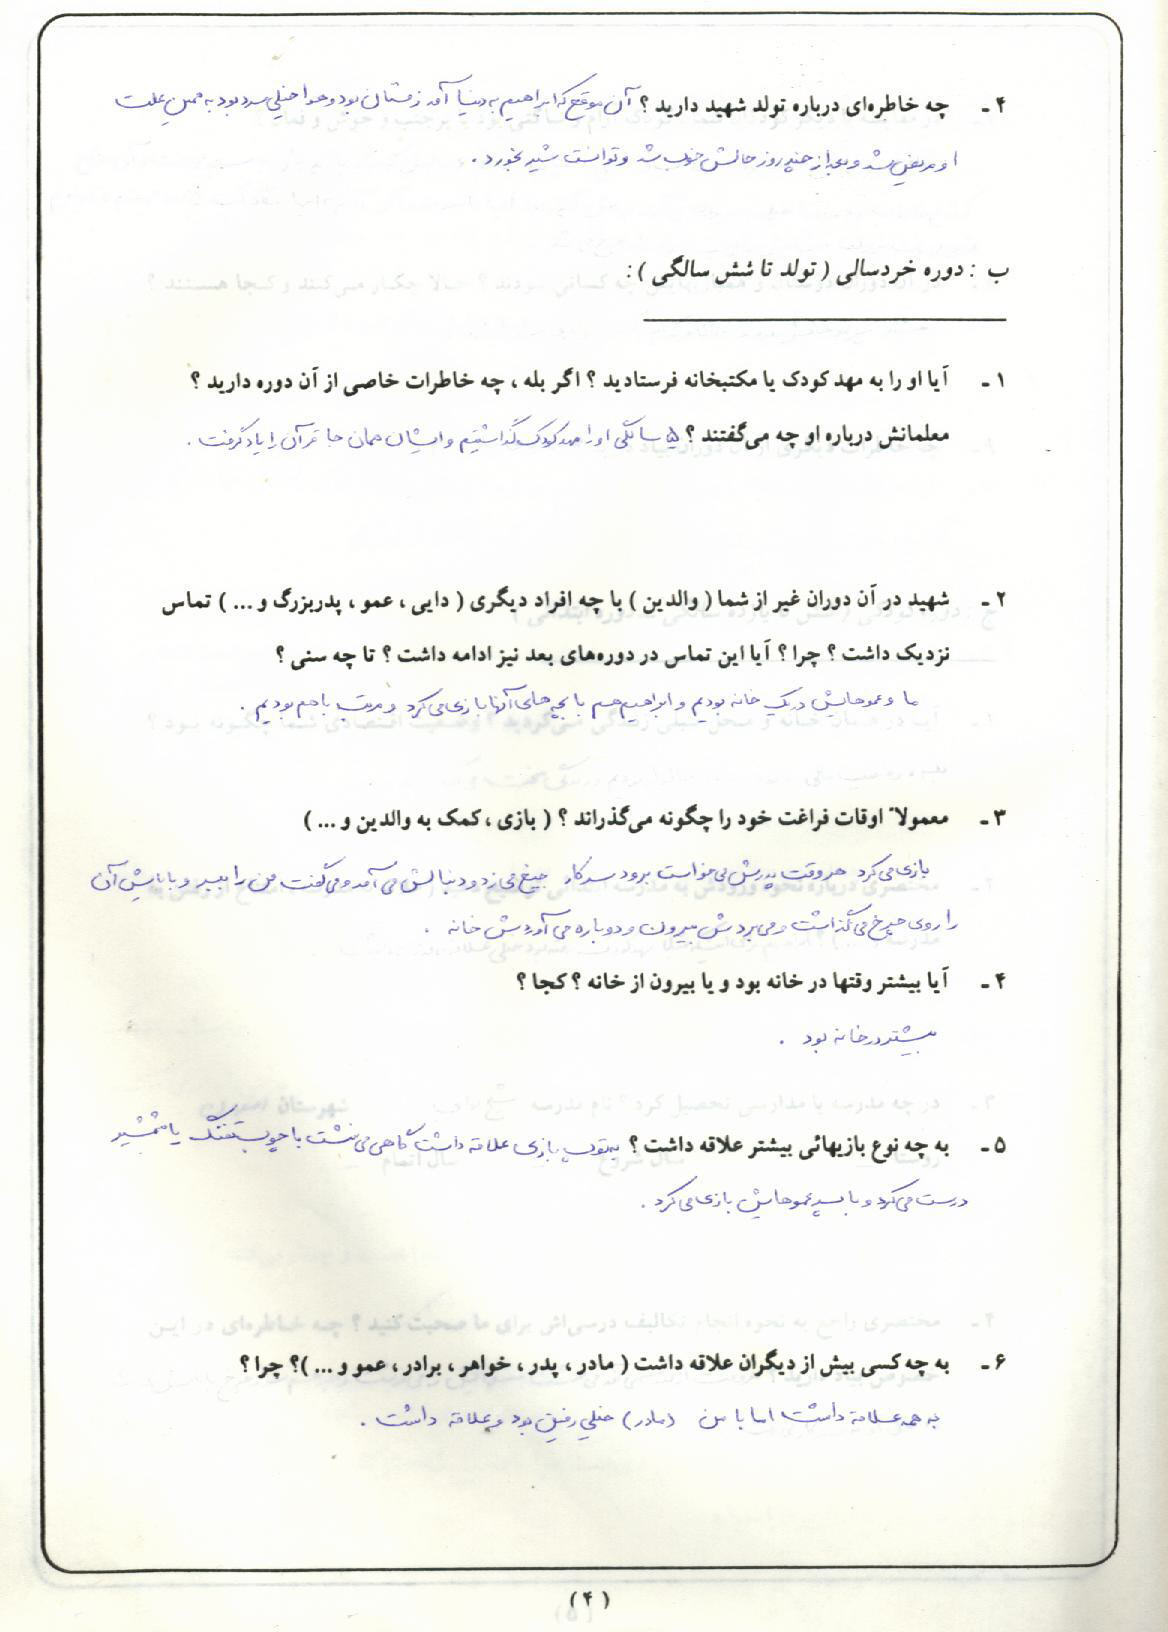 ۴ ـ چه خاطره‌ای درباره تولد شهید دارید ؟ آن موقع که ابراهیم به دنیا آمد زمستان بود و هوا خیلی سرد بود به همین علت
او مریض شد و بعد از چند روز حالش خوب شد و توانست شیر بخورد .
ب : دوره خردسالی ( تولد تا شش سالگی ) :
۱ ـ آیا او را به مهد کودک یا مکتبخانه فرستادید ؟ اگر بله ، چه خاطرات خاصی از آن دوره دارید ؟
معلمانش درباره او چه می‌گفتند ؟ ۵ سالگی او را مهد کودک گذاشتیم و ایشان همان جا قرآن را یاد گرفت .
۲ ـ شهید در آن دوران غیر از شما ( والدین ) با چه افراد دیگری ( دایی ، عمو ، پدربزرگ و ... ) تماس
نزدیک داشت ؟ چرا ؟ آیا این تماس در دوره‌های بعد نیز ادامه داشت ؟ تا چه سنی ؟
ما و عموهایش در یک خانه بودیم و ابراهیم هم با بچه های آنها بازی می کرد و مرتب با هم بودیم .
۳ ـ معمولاً اوقات فراغت خود را چگونه می‌گذراند ؟ ( بازی ، کمک به والدین و ... )
بازی می کرد هر وقت پدرش می خواست برود سر کار جیغ می زد و دنبالش می آمد و می گفت من را ببر و بابایش آن
را روی چرخ می گذاشت و می بردش بیرون و دوباره می آوردش خانه .
۴ ـ آیا بیشتر وقتها در خانه بود و یا بیرون از خانه ؟ کجا ؟
بیشتر در خانه بود .
۵ ـ به چه نوع بازیهائی بیشتر علاقه داشت ؟ به توپ بازی علاقه داشت گاهی می نشست با چوب تفنگ یا شمشیر
درست می کرد و با پسر عموهایش بازی می کرد .
۶ ـ به چه کسی بیش از دیگران علاقه داشت ( مادر ، پدر ، خواهر ، برادر ، عمو و ... )؟ چرا ؟
به همه علاقه داشت اما با من (مادر) خیلی رفیق بود و علاقه داشت .
( ۴ )